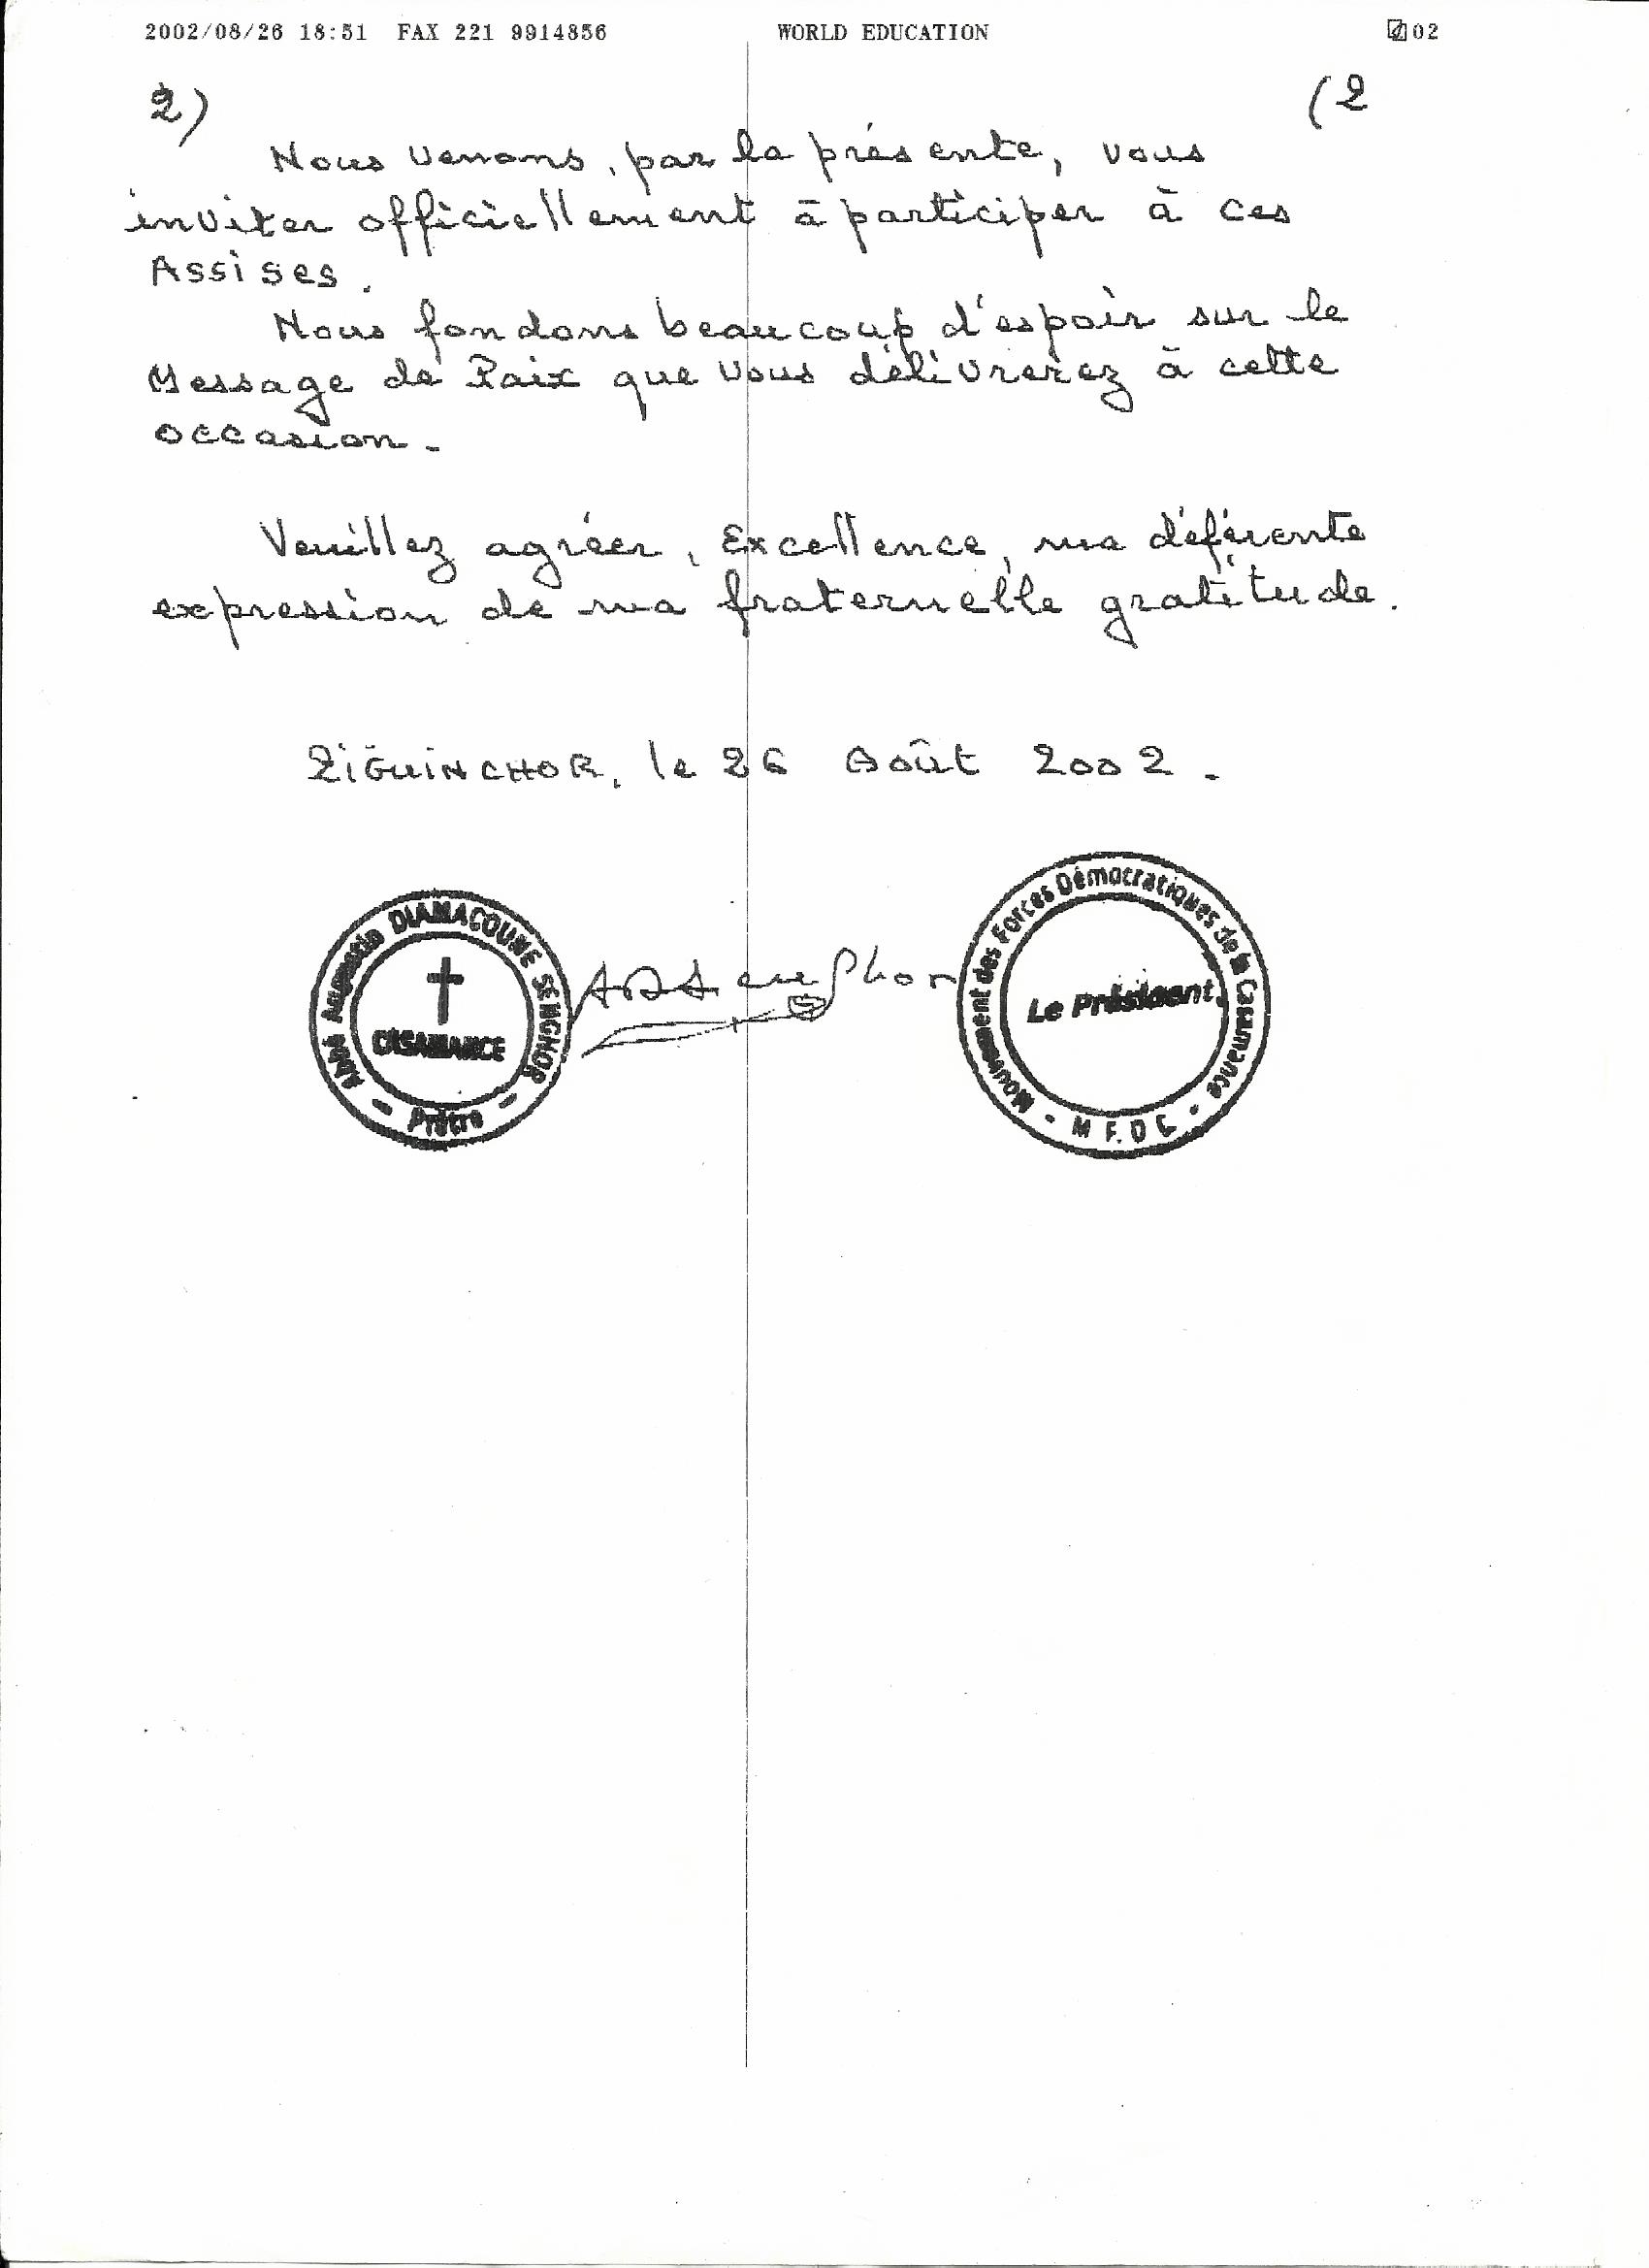 2002/08/26 18:51 FAX 221 9914856 WORLD EDUCATION 02
2) (2
Nous venons, par la présente, vous
inviter officiellement à participer à ces
Assises.
Nous fondons beaucoup d'espoir sur le
Message de Paix que vous délivrerez à cette
occasion.
Veuillez agréer, Excellence, ma déférente
expression de ma fraternelle gratitude.
ZIGUINCHOR, le 26 Août 2002.
Abbé Augustin DIAMACOUNE SENGHOR
CASAMANCE
- Prêtre -
ADSenghor
Mouvement des Forces Démocratiques de la Casamance
Le Président
- M F.D C -